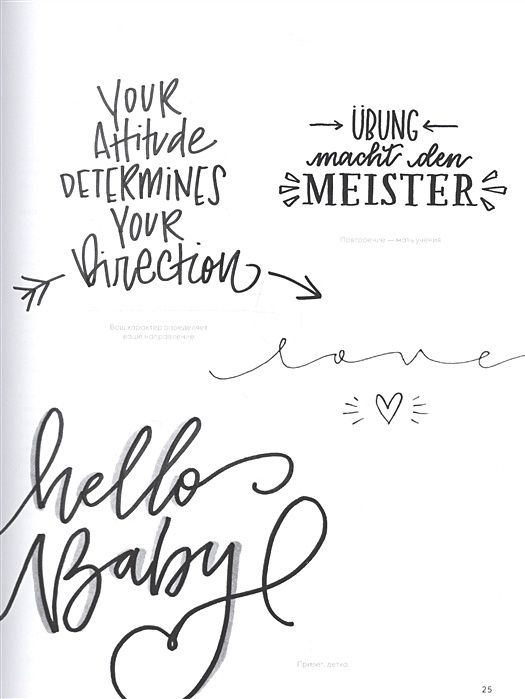 YOUR
Attitude
DETERMINES
YOUR
Direction
Ваш характер определяет
ваше направление
ÜBUNG
macht den
MEISTER
Повторение — мать учения
love
hello
Baby
Привет, детка
25